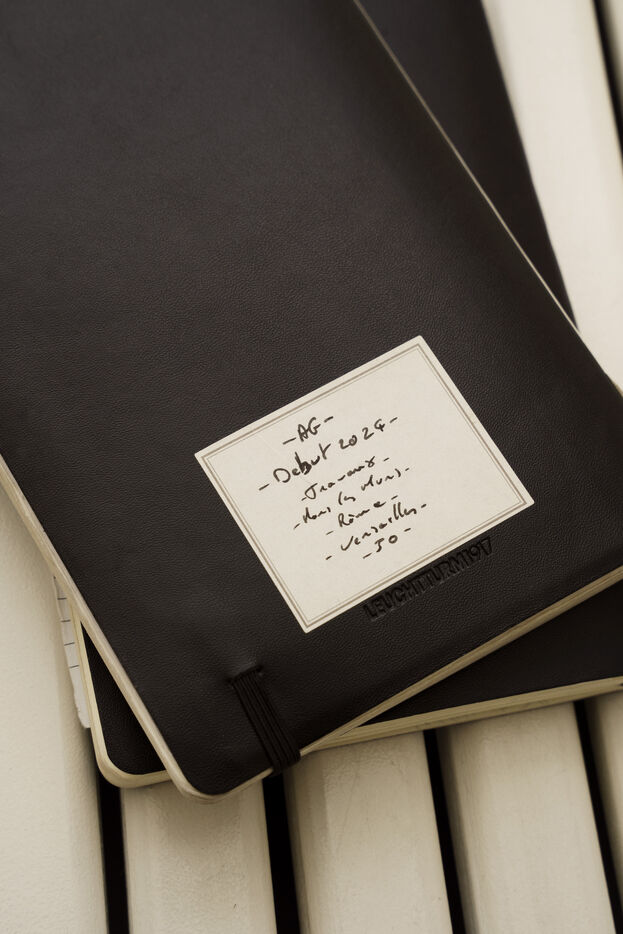 -AG-
-Debut 2024-
-Travaux-
-dans les Murs-
-Rome-
-Versailles-
-JO-
LEUCHTTURM1917